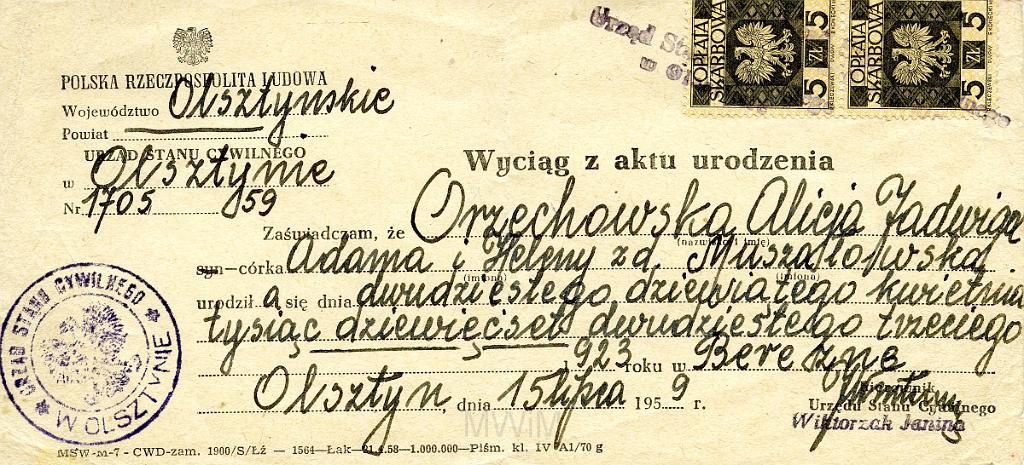 POLSKA RZECZPOSPOLITA LUDOWA
Województwo Olsztyńskie
Powiat
URZĄD STANU CYWILNEGO
w Olsztynie
Nr. 1705 /59
Urząd Sta
w Ol
OPŁATA SKARBOWA 5 ZŁ 5
OPŁATA SKARBOWA 5 ZŁ 5
Wyciąg z aktu urodzenia
Zaświadczam, że Orzechowska Alicja Jadwiga
(nazwisko i imię)
syn—córka Adama i Heleny z d. Muszałowska
(imiona) (imiona)
urodził a się dnia dwudziestego dziewiątego kwietnia
tysiąc dziewięćset dwudziestego trzeciego
1923 roku w Bereźne
Olsztyn, dnia 15 lipca 1959 r.
Kierownik
Urzędu Stanu Cywilnego
Wiktorzak Janina
URZĄD STANU CYWILNEGO W OLSZTYNIE
MWM
MSW-m-7 - CWD-zam. 1900/S/Łź — 1564—Łak—21.4.58—1.000.000—Piśm. kl. IV A1/70 g